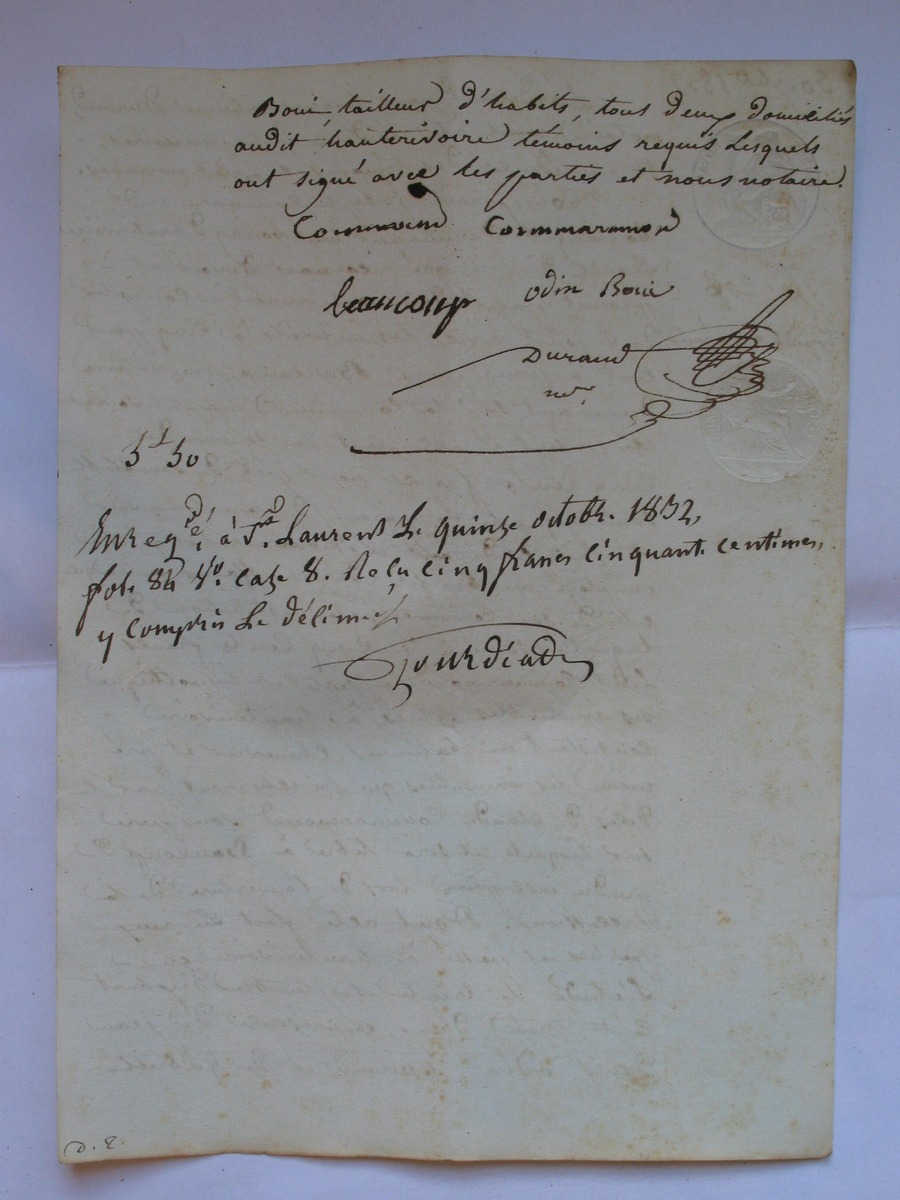 Boui, tailleur d'habits, tous deux domiciliés
audit hauterivoire témoins requis lesquels
ont signé avec les parties et nous notaire.
Commarmond
beaucoup odin Boui
Durand
nre
5f 50
Enregé. à St. Laurent Le quinze octobre 1832,
fol. 84 Vo. case 8. Reçu cinq francs cinquante centimes,
y compris Le décime
D. E.